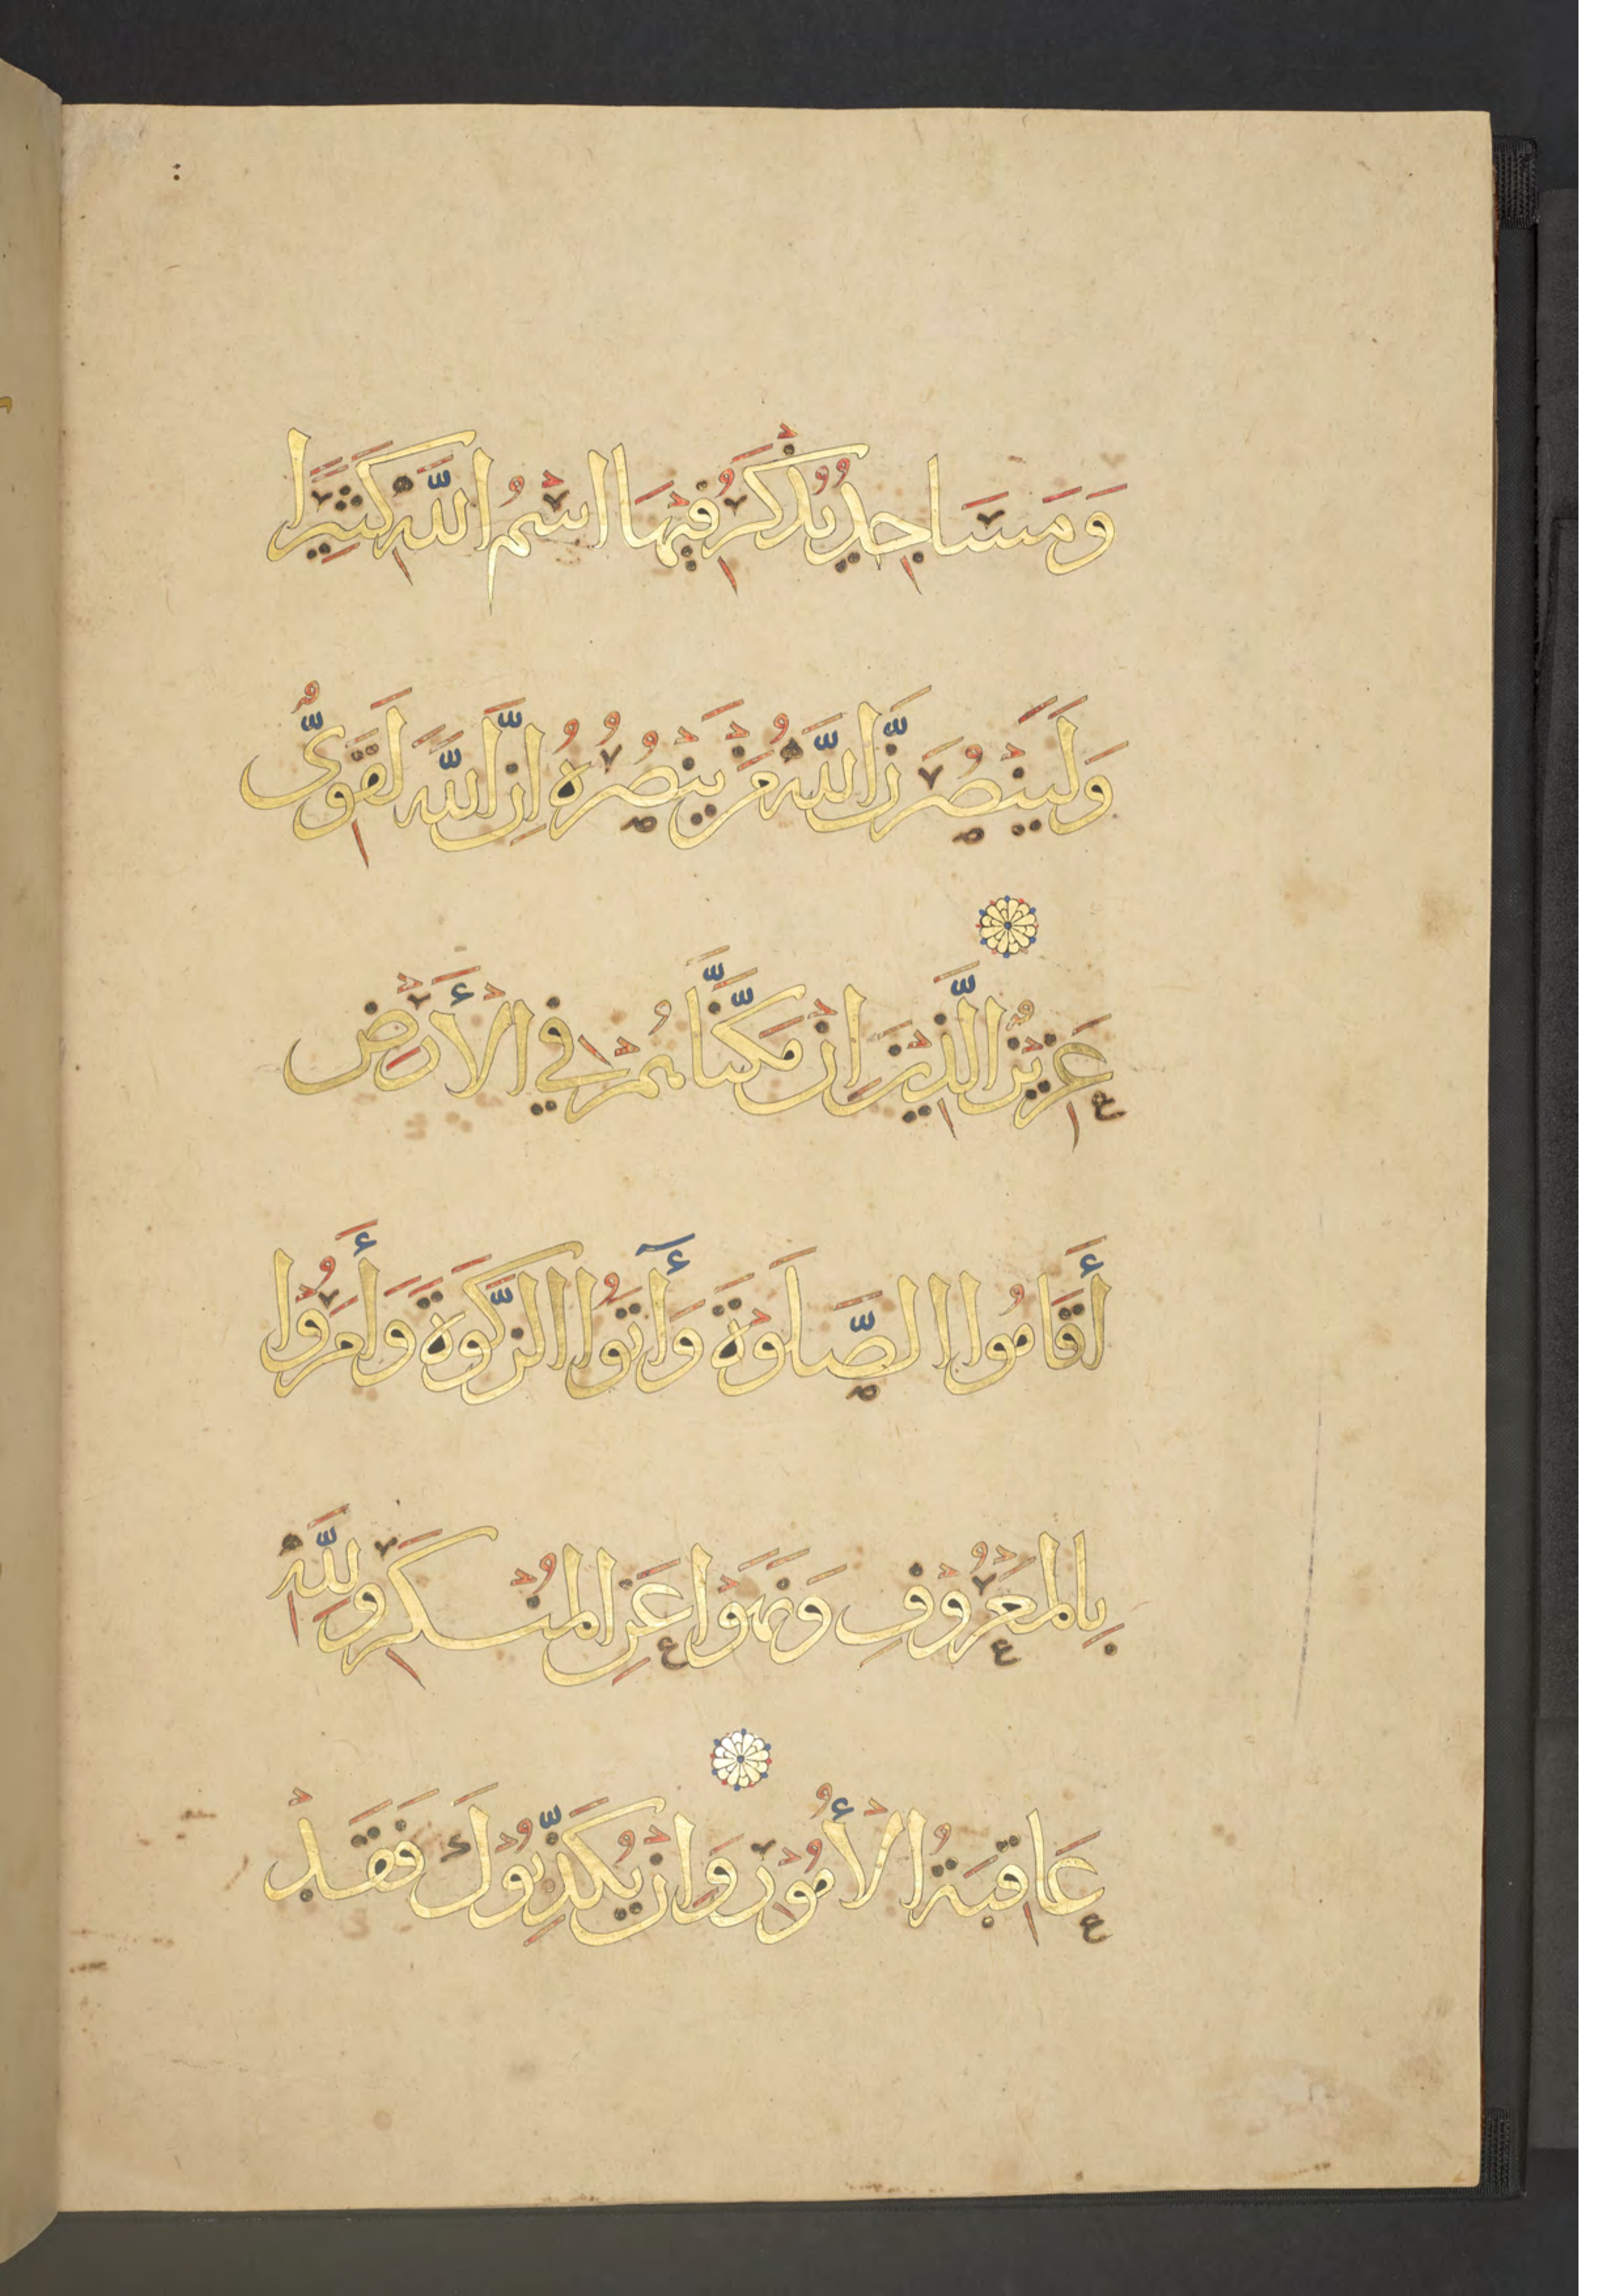 وَمَسَاجِدُ يُذْكَرُ فِيْهَا اسْمُ اللَّهِ كَثِيْرًا
وَلَيَنْصُرَنَّ اللَّهُ مَنْ يَنْصُرُهُ اِنَّ اللَّهَ لَقَوِىٌّ
عَزِيْزٌ الَّذِيْنَ اِنْ مَكَّنَّاهُمْ فِي الْأَرْضِ
أَقَامُوا الصَّلَوٰةَ وَأٓتَوُا الزَّكَوةَ وَأَمَرُوْا
بِالْمَعْرُوْفِ وَنَهَوْا عَنِ الْمُنْكَرِ وَلِلَّهِ
عَاقِبَةُ الْأُمُوْرِ وَاِنْ يُكَذِّبُوْكَ فَقَدْ